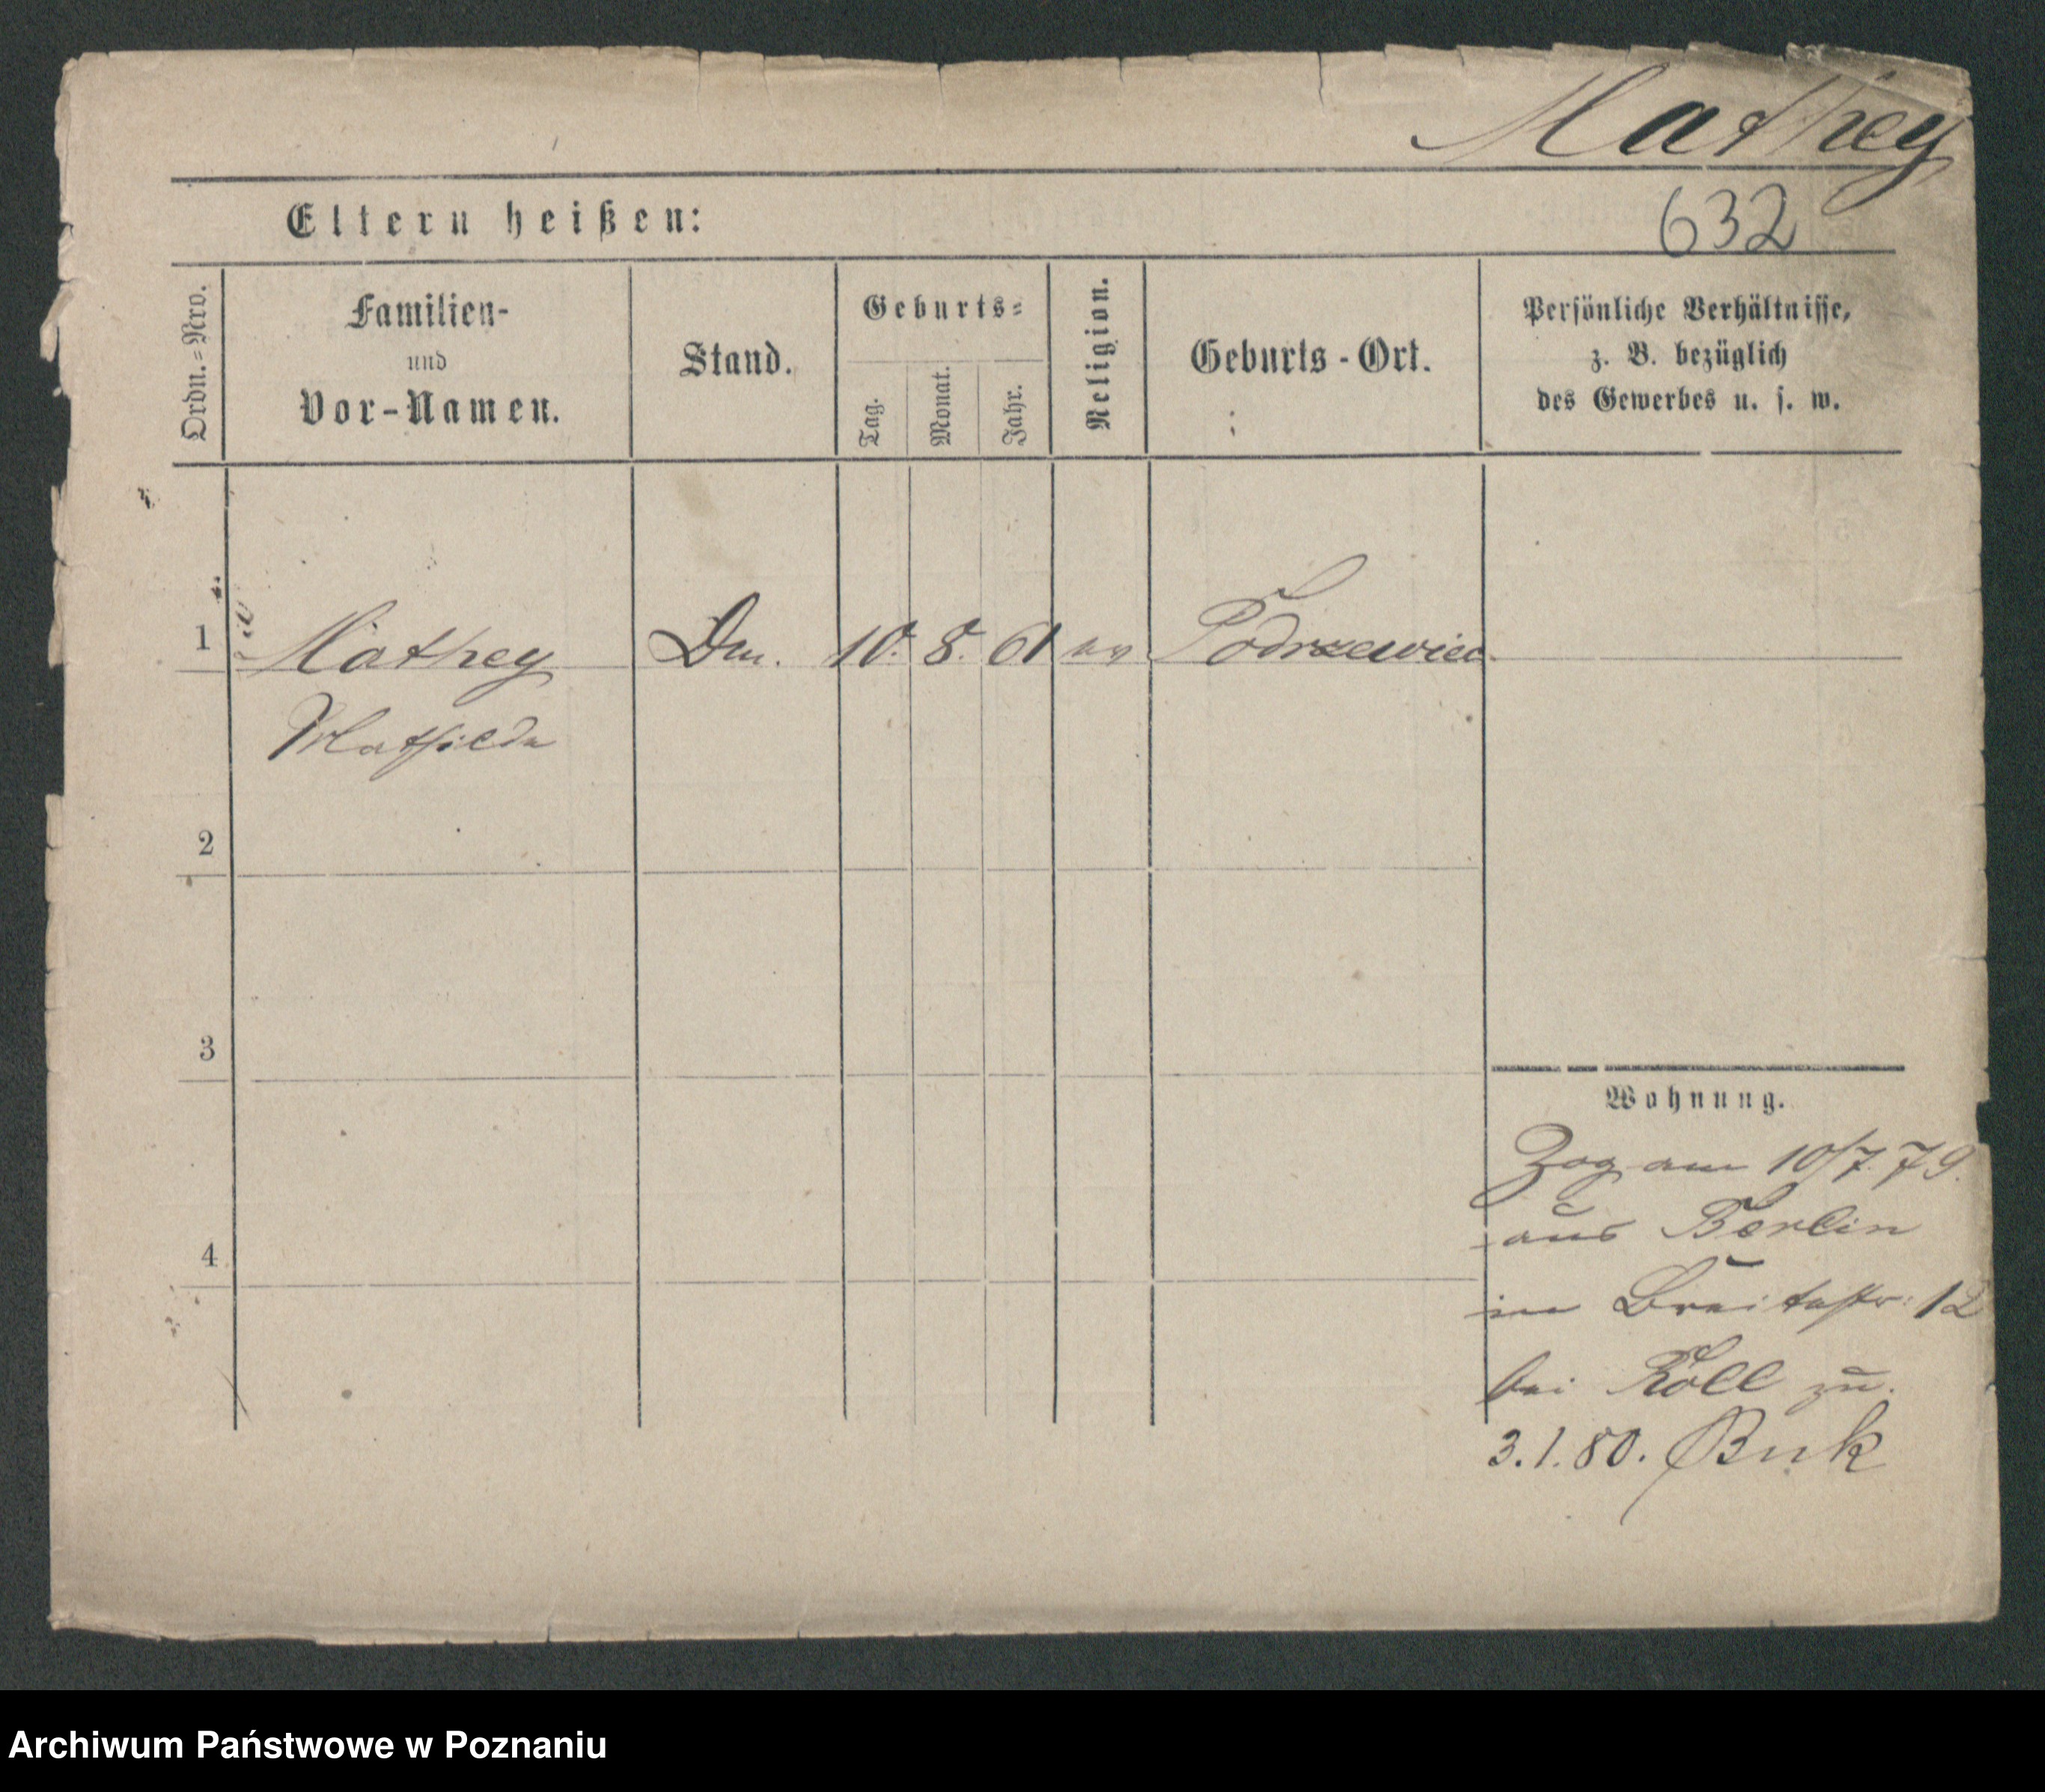 Mathey
632
Eltern heißen:
Ordn.=Nro.
Familien-
und
Vor-Namen.
Stand.
Geburts=
Tag.
Monat.
Jahr.
Religion.
Geburts-Ort.
Persönliche Verhältnisse,
z. B. bezüglich
des Gewerbes u. s. w.
1 Mathey 10. 8. 61 ev Podrzewiec
Mathilde
2
3
4
Wohnung.
Zog am 10/7. 79.
aus Berlin
in Breitestr: 12
bei Röll zu.
3.1.80. Buk
Archiwum Państwowe w Poznaniu